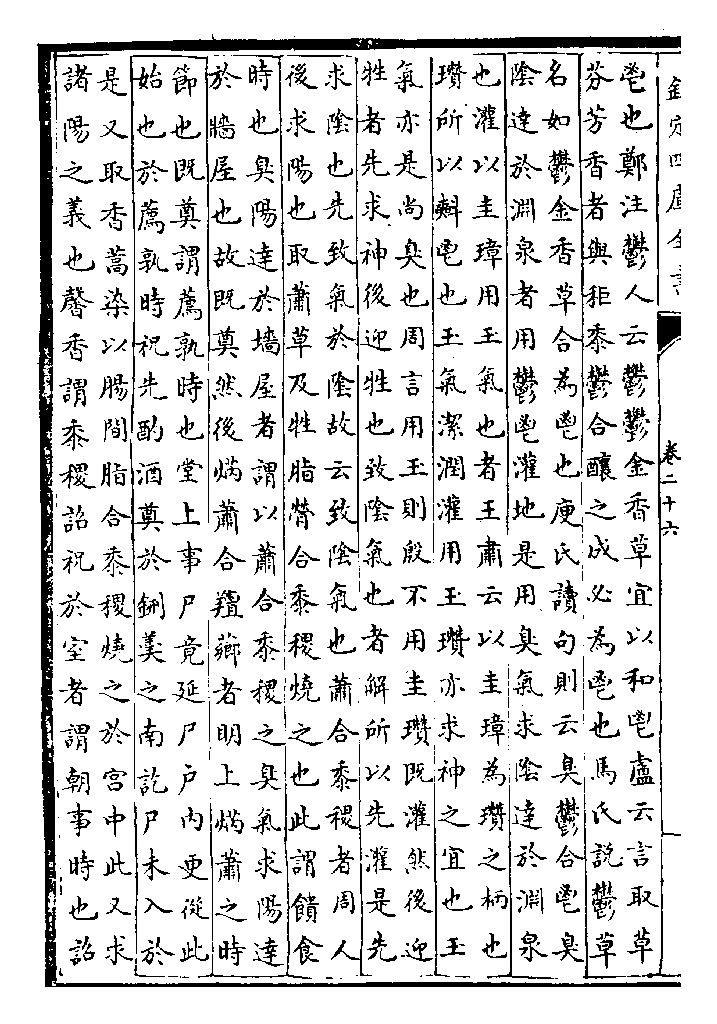 欽定四庫全書
卷二十六
鬯也鄭注鬱人云鬱鬱金香草宜以和鬯盧云言取草
芬芳香者與秬黍鬱合釀之成必為鬯也馬氏說鬱草
名如鬱金香草合為鬯也庾氏讀句則云臭鬱合鬯臭
陰達於淵泉者用鬱鬯灌地是用臭氣求陰達於淵泉
也灌以圭璋用玉氣也者王肅云以圭璋為瓚之柄也
瓚所以㪺鬯也玉氣潔潤灌用玉瓚亦求神之宜也玉
氣亦是尚臭也周言用玉則殷不用圭瓚既灌然後迎
牲者先求神後迎牲也致陰氣也者解所以先灌是先
求陰也先致氣於陰故云致陰氣也蕭合黍稷者周人
後求陽也取蕭草及牲脂膋合黍稷燒之也此謂饋食
時也臭陽達於墻屋者謂以蕭合黍稷之臭氣求陽達
於牆屋也故既奠然後焫蕭合羶薌者明上焫蕭之時
節也既奠謂薦孰時也堂上事尸竟延尸戶內更從此
始也於薦孰時祝先酌酒奠於鉶羹之南訖尸未入於
是又取香蒿染以腸間脂合黍稷燒之於宮中此又求
諸陽之義也馨香謂黍稷詔祝於室者謂朝事時也詔